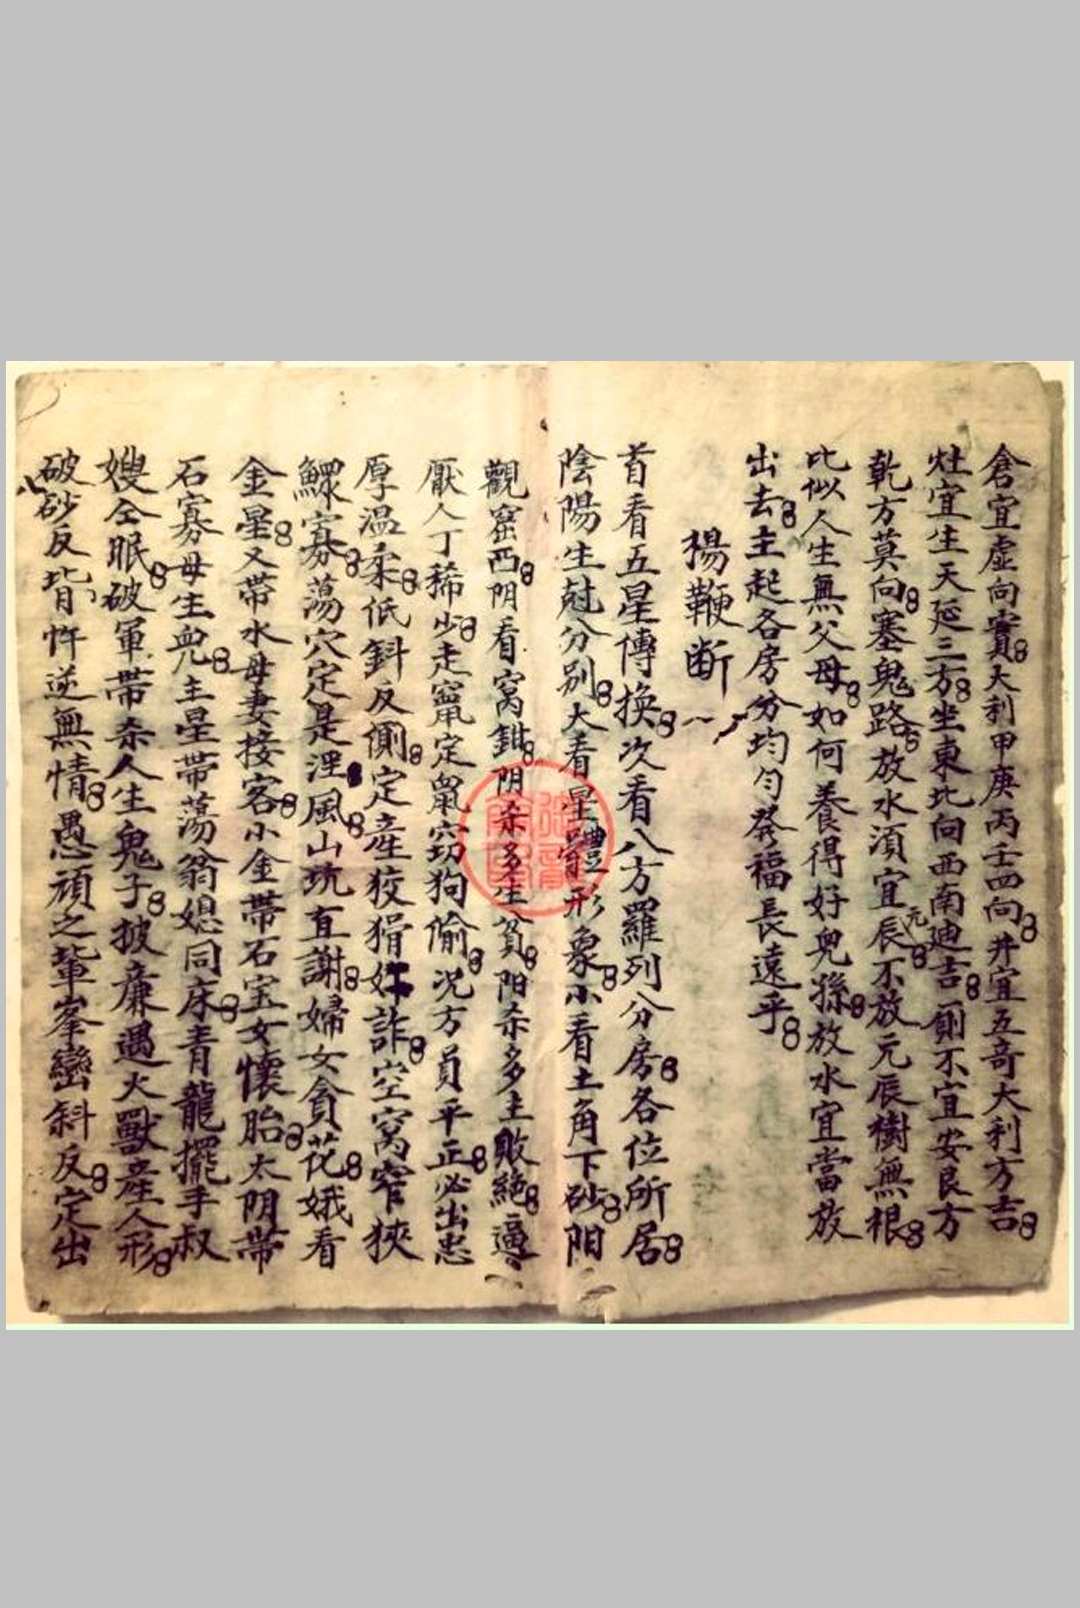 倉宜虛向實大利甲庚丙壬四向井宜五奇大利方吉
灶宜生天延三方坐東北向西南迪吉厠不宜安艮方
乾方莫向塞鬼路放水須宜辰不放元辰樹無根
元
比似人生無父母如何養得好兒孫放水宜當放
出去主起各房分均勻發福長遠乎
楊鞭断
首看五星傳換次看八方羅列分房各位所居
陰陽生尅分别大看星體形象小看土角下砂阳
觀窑西阴看窩鉗阴杀多生貧阳杀多主敗絕逼
厭人丁稀少走竄定鼠窃狗偷况方員平正必出忠
厚温柔低斜反側定産狡猾奸詐空窩窄狹
鰥寡蕩穴定是浬風山坑直謝婦女貪花娥看
金星又帶水母妻接客小金帶石宝女懷胎太阴帶
石寡母生兒主星帶蕩翁媳同床青龍擺手叔
嫂全眠破軍帶杀人生鬼子披廉遇火獸産人形
破砂反背忤逆無情愚頑之輩峯巒斜反定出
八